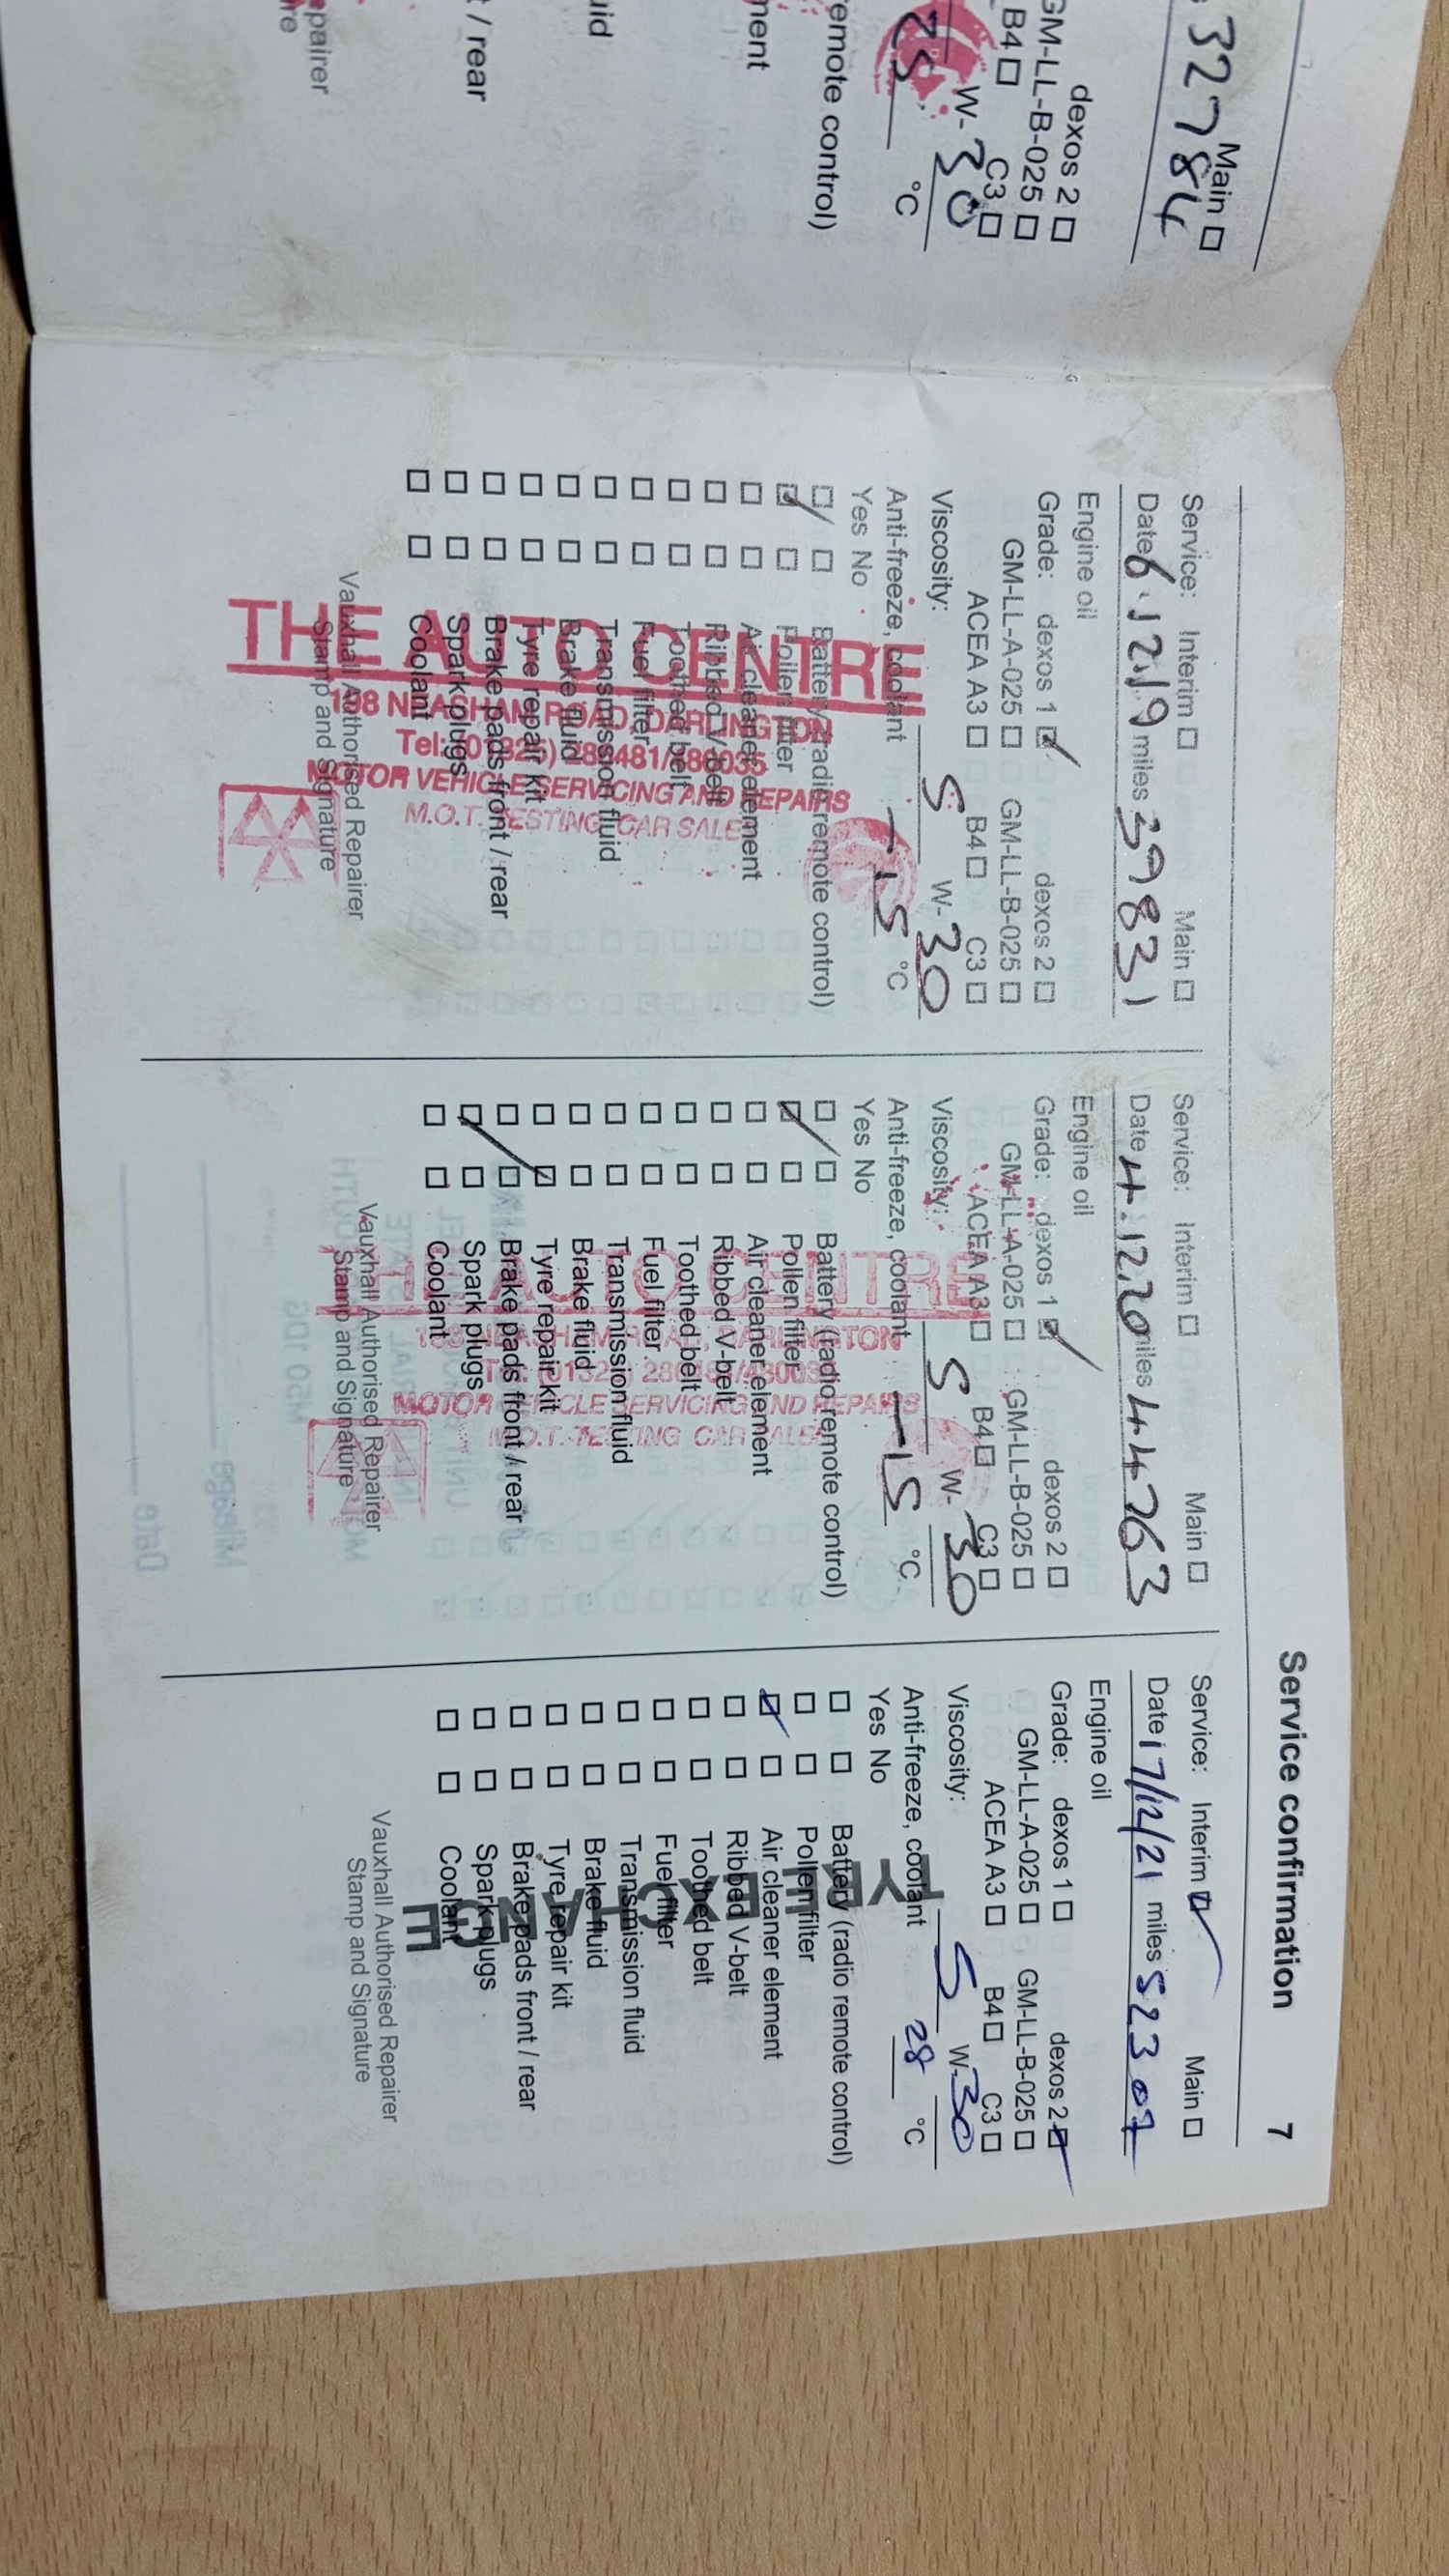 Service confirmation 7
Main ☐
32784
dexos 2 ☐
GM-LL-B-025 ☐
B4 ☐ C3 ☐
W-30
25 °C
emote control)
ment
uid
t / rear
epairer
re
Service: Interim ☐ Main ☐
Date 6.12.19 miles 39831
Engine oil
Grade: dexos 1 ☑ dexos 2 ☐
GM-LL-A-025 ☐ GM-LL-B-025 ☐
ACEA A3 ☐ B4 ☐ C3 ☐
Viscosity: 5 W-30
Anti-freeze, coolant -15 °C
Yes No
☐ ☐ Battery (radio remote control)
☑ ☐ Pollen filter
☐ ☐ Air cleaner element
☐ ☐ Ribbed V-belt
☐ ☐ Toothed belt
☐ ☐ Fuel filter
☐ ☐ Transmission fluid
☐ ☐ Brake fluid
☐ ☐ Tyre repair kit
☐ ☐ Brake pads front / rear
☐ ☐ Spark plugs
☐ ☐ Coolant
Vauxhall Authorised Repairer
Stamp and Signature
THE AUTO CENTRE
NEASHAM ROAD, DARLINGTON
MOTOR VEHICLE SERVICING AND REPAIRS
M.O.T. TESTING CAR SALES
Service: Interim ☐ Main ☐
Date 4.12.20 miles 44763
Engine oil
Grade: dexos 1 ☑ dexos 2 ☐
GM-LL-A-025 ☐ GM-LL-B-025 ☐
ACEA A3 ☐ B4 ☐ C3 ☐
Viscosity: 5 W-30
Anti-freeze, coolant -15 °C
Yes No
☐ ☐ Battery (radio remote control)
☑ ☐ Pollen filter
☐ ☐ Air cleaner element
☐ ☐ Ribbed V-belt
☐ ☐ Toothed belt
☐ ☐ Fuel filter
☐ ☐ Transmission fluid
☐ ☐ Brake fluid
☐ ☐ Tyre repair kit
☐ ☐ Brake pads front / rear
☑ ☐ Spark plugs
☐ ☐ Coolant
Vauxhall Authorised Repairer
Stamp and Signature
AUTO CENTRE
NEASHAM ROAD, DARLINGTON
MOTOR VEHICLE SERVICING AND REPAIRS
M.O.T. TESTING CAR SALES
Service: Interim ☑ Main ☐
Date 17/12/21 miles 52307
Engine oil
Grade: dexos 1 ☐ dexos 2 ☑
GM-LL-A-025 ☐ GM-LL-B-025 ☐
ACEA A3 ☐ B4 ☐ C3 ☐
Viscosity: 5 W-30
Anti-freeze, coolant 28 °C
Yes No
☐ ☐ Battery (radio remote control)
☐ ☐ Pollen filter
☑ ☐ Air cleaner element
☐ ☐ Ribbed V-belt
☐ ☐ Toothed belt
☐ ☐ Fuel filter
☐ ☐ Transmission fluid
☐ ☐ Brake fluid
☐ ☐ Tyre repair kit
☐ ☐ Brake pads front / rear
☐ ☐ Spark plugs
☐ ☐ Coolant
Vauxhall Authorised Repairer
Stamp and Signature
TYRE EXCHANGE